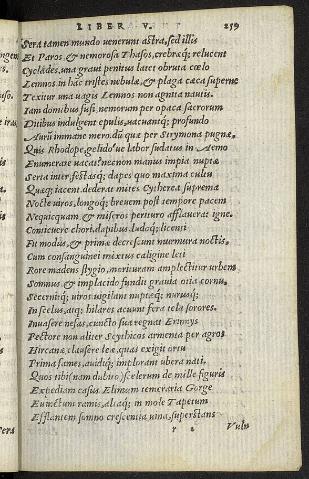 LIBER V. 259
Sera tamen mundo uenerunt astra, sed illis
Et Paros & nemorosa Thasos, crebræq; relucent
Cyclades, una graui penitus latet obruta cœlo
Lemnos in hāc tristes nebulæ, & plaga cæca superne
Texitur una uagis Lemnos non agnita nautis.
Iam domibus fusi, nemorum per opaca sacrorum
Ditibus indulgent epulis, uacuantq; profundo
Aurū immane mero. dū quæ per Strymona pugnæ,
Quis Rhodope, gelido'ue labor sudatus in Aemo
Enumerare uacat: necnon manus impia nuptæ
Serta inter, festasq; dapes quo maxima cultu
Quæq; iacent. dederat mites Cytherea suprema
Nocte uiros, longoq; breuem post tempore pacem
Nequicquam & miseros perituro afflauerat igne.
Conticuere chori, dapibus ludoq; licenti
Fit modus, & primæ decrescunt murmura noctis.
Cum consanguinei mixtus caligine leti
Rore madens stygio, morituram amplectitur urbem
Somnus & implacido fundit grauia otia cornu,
Secernitq; uiros. uigilant nuptæq; nurusq;
In scelus, atq; hilares acuunt fera tela sorores.
Inuasere nefas, cuncto sua regnat Erinnys
Pectore non aliter Scythicos armenta per agros
Hircanæ clausere leæ, quas exigit ortu
Prima fames, auidiq; implorant ubera nati.
Quos tibi (nam dubito) scelerum de mille figuris
Expediam casus Elinum temeraria Gorge
Euinctum ramis, altaq; in mole Tapetum
Efflantem somno crescentia uina, superstans
r 2 Vuln